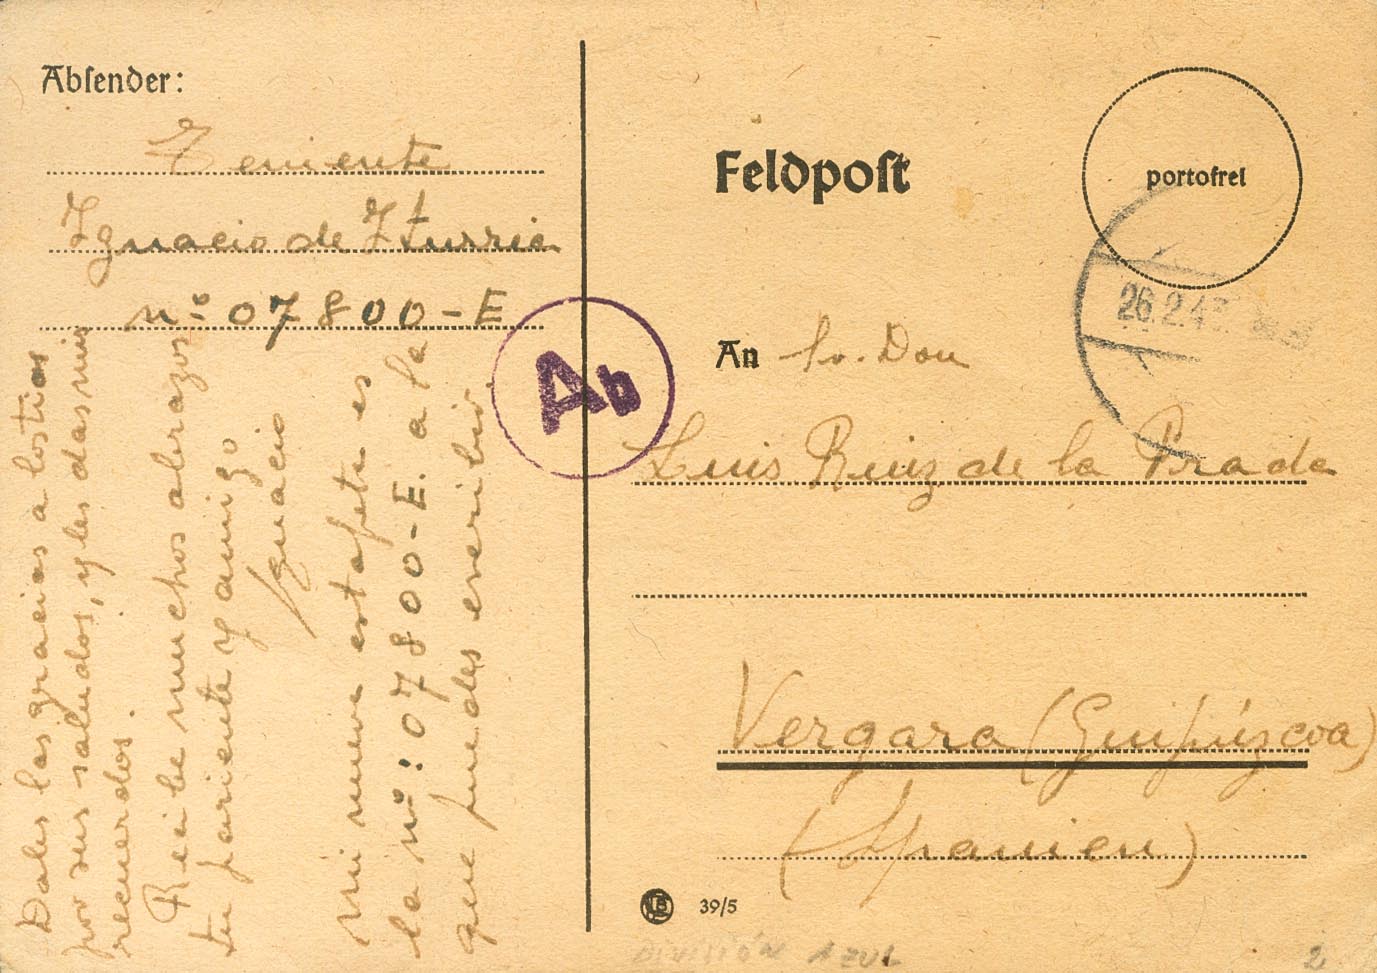 Absender:
Teniente
Ignacio de Iturria
nº 07800-E
Dales las gracias a los tios
por sus saludos, y les das mis
recuerdos.
Recibe muchos abrazos
tu pariente y amigo
Ignacio
mi nueva estafeta es
la nº: 07800-E. a la
que puedes escribir
Ab
Feldpost
portofrei
26.2.43
An Sr. Don
Luis Ruiz de la Prada
Vergara (Guipúzcoa)
(Spanien)
39/5
DIVISIÓN AZUL
2